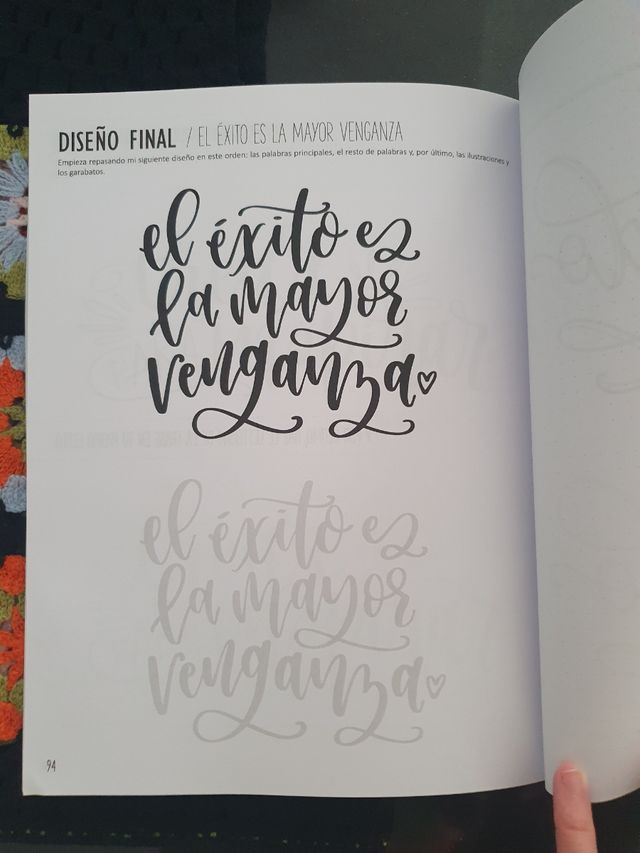 DISEÑO FINAL / EL ÉXITO ES LA MAYOR VENGANZA
Empieza repasando mi siguiente diseño en este orden: las palabras principales, el resto de palabras y, por último, las ilustraciones y
los garabatos.
el éxito es
la mayor
venganza
el éxito es
la mayor
venganza
94